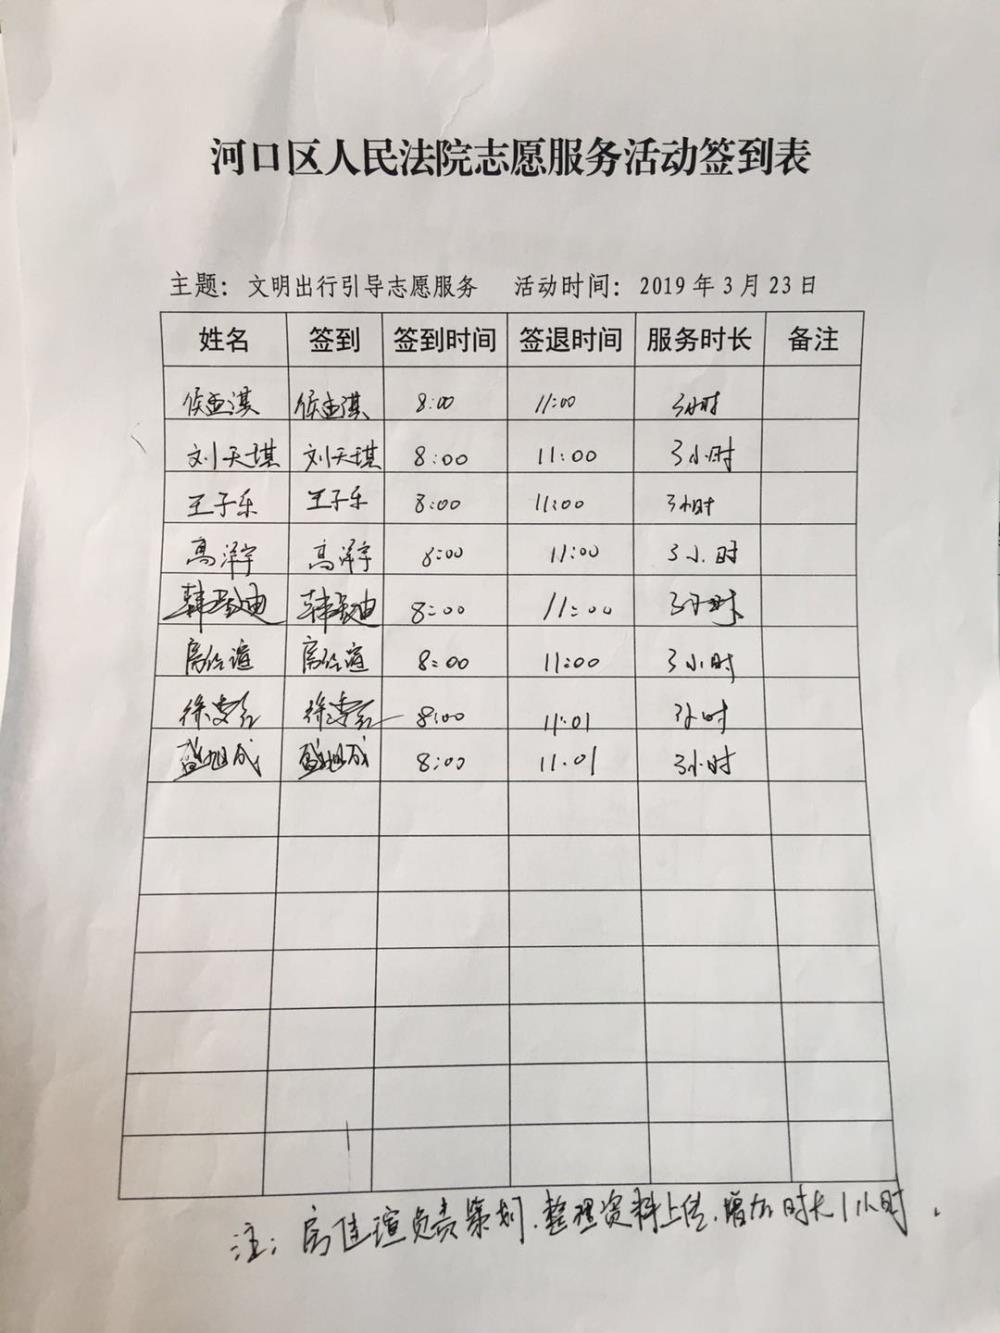 河口区人民法院志愿服务活动签到表
主题：文明出行引导志愿服务 活动时间：2019年3月23日
姓名 签到 签到时间 签退时间 服务时长 备注
侯孟淇 侯孟淇 8:00 11:00 3小时
刘天琪 刘天琪 8:00 11:00 3小时
王子乐 王子乐 8:00 11:00 3小时
高泽宇 高泽宇 8:00 11:00 3小时
韩 迪 韩 迪 8:00 11:00 3小时
房佳瑄 房佳瑄 8:00 11:00 3小时
徐 徐 8:00 11:01 3小时
盛旭成 盛旭成 8:00 11:01 3小时
注：房佳瑄负责策划、整理资料上传、增加时长1小时。